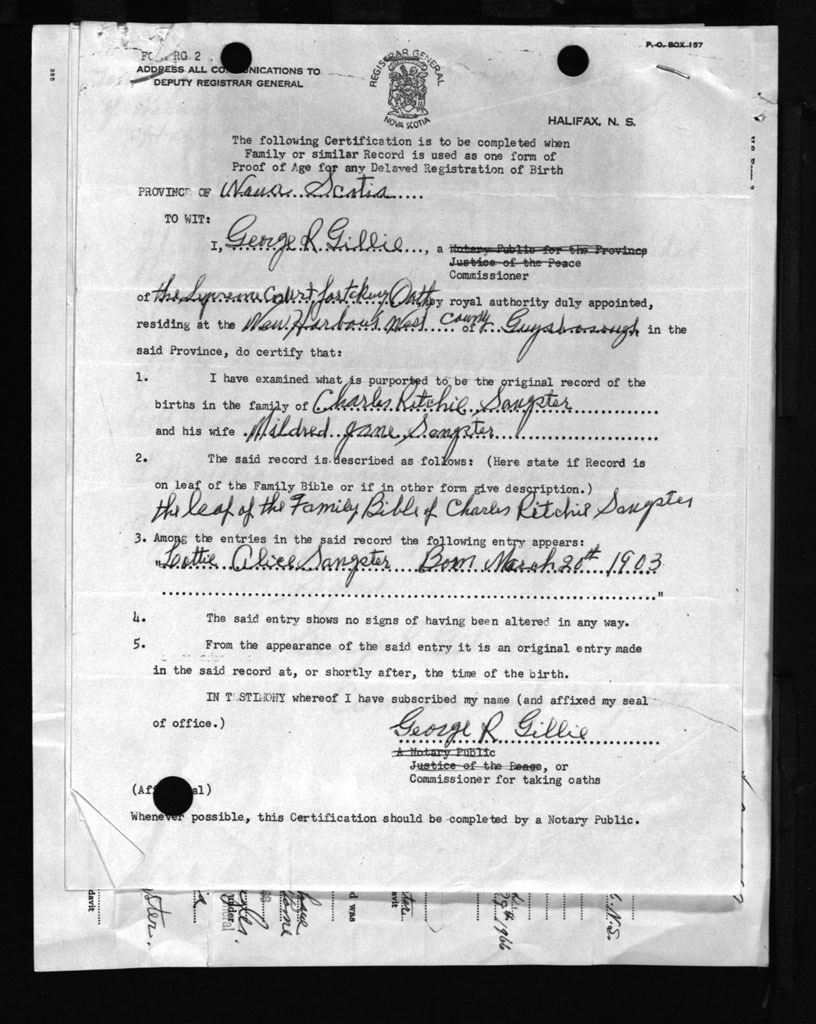 RG 2
P. O. BOX 157
ADDRESS ALL CO NICATIONS TO
DEPUTY REGISTRAR GENERAL
REGISTRAR GENERAL
NOVA SCOTIA
HALIFAX, N. S.
The following Certification is to be completed when
Family or similar Record is used as one form of
Proof of Age for any Delayed Registration of Birth
PROVINCE OF Nova Scotia
TO WIT:
I, George R Gillie, a Notary Public for the Province
Justice of the Peace
Commissioner
of the Supreme Court for taking Oath by royal authority duly appointed,
residing at the New Harbour West County of Guysborough in the
said Province, do certify that:
1. I have examined what is purported to be the original record of the
births in the family of Charles Ritchie Sangster
and his wife Mildred Jane Sangster
2. The said record is described as follows: (Here state if Record is
on leaf of the Family Bible or if in other form give description.)
the leaf of the Family Bible of Charles Ritchie Sangster
3. Among the entries in the said record the following entry appears:
"Lottie Alice Sangster Born March 20th 1903
"
4. The said entry shows no signs of having been altered in any way.
5. From the appearance of the said entry it is an original entry made
in the said record at, or shortly after, the time of the birth.
IN T STIMONY whereof I have subscribed my name (and affixed my seal
of office.)
George R Gillie
A Notary Public
Justice of the Peace, or
Commissioner for taking oaths
(Af al)
Whenever possible, this Certification should be completed by a Notary Public.
davit
ster.
under
eral
d was
davit
1966
N.S.